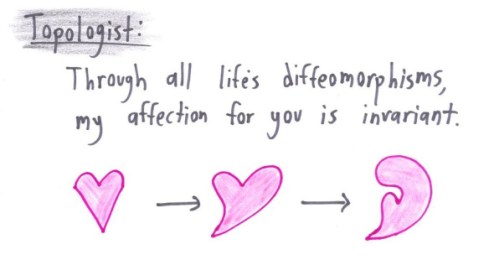 Topologist:
Through all life's diffeomorphisms,
my affection for you is invariant.